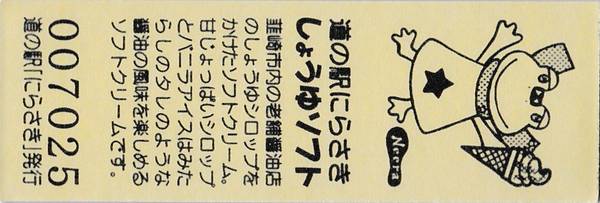 Neera
道の駅にらさき
しょうゆソフト
韮崎市内の老舗醤油店
のしょうゆシロップを
かけたソフトクリーム。
甘じょっぱいシロップ
とバニラアイスはみた
らしのタレのような
醤油の風味を楽しめる
ソフトクリームです。
007025
道の駅「にらさき」発行